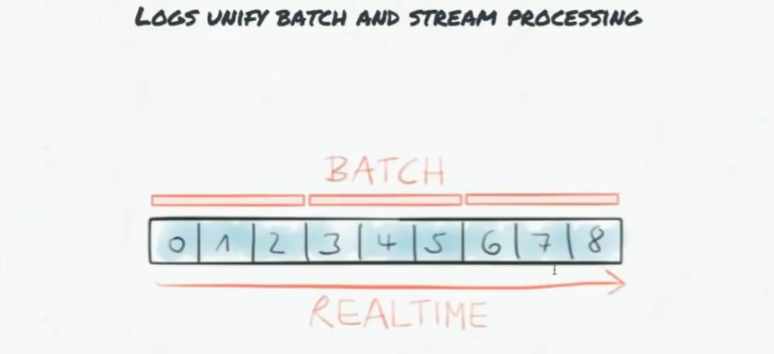 LOGS UNIFY BATCH AND STREAM PROCESSING
BATCH
0 1 2 3 4 5 6 7 8
REALTIME